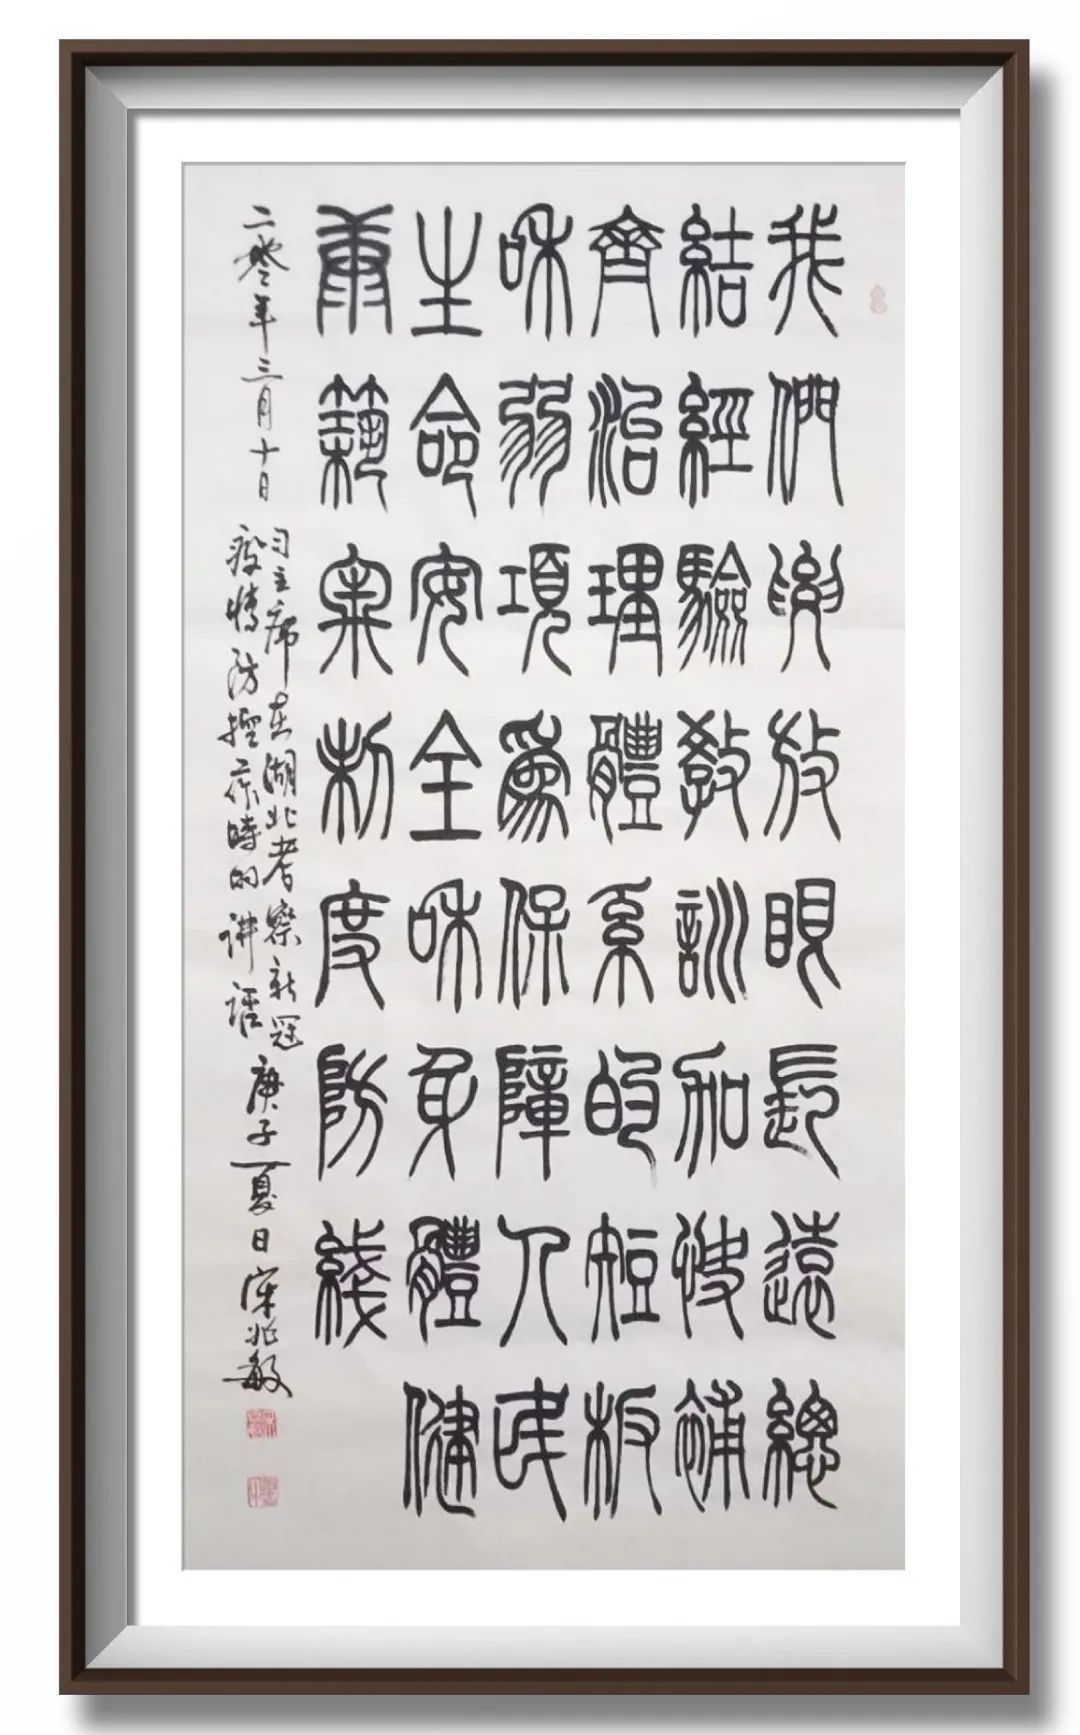 我們要放眼長遠總
結經驗教訓加快補
齊治理體系的短板
和弱項爲保障人民
生命安全和身體健
康築牢制度防綫
二零年三月十日
习主席在湖北考察新冠
疫情防控時的讲話
庚子夏日宋兆敏